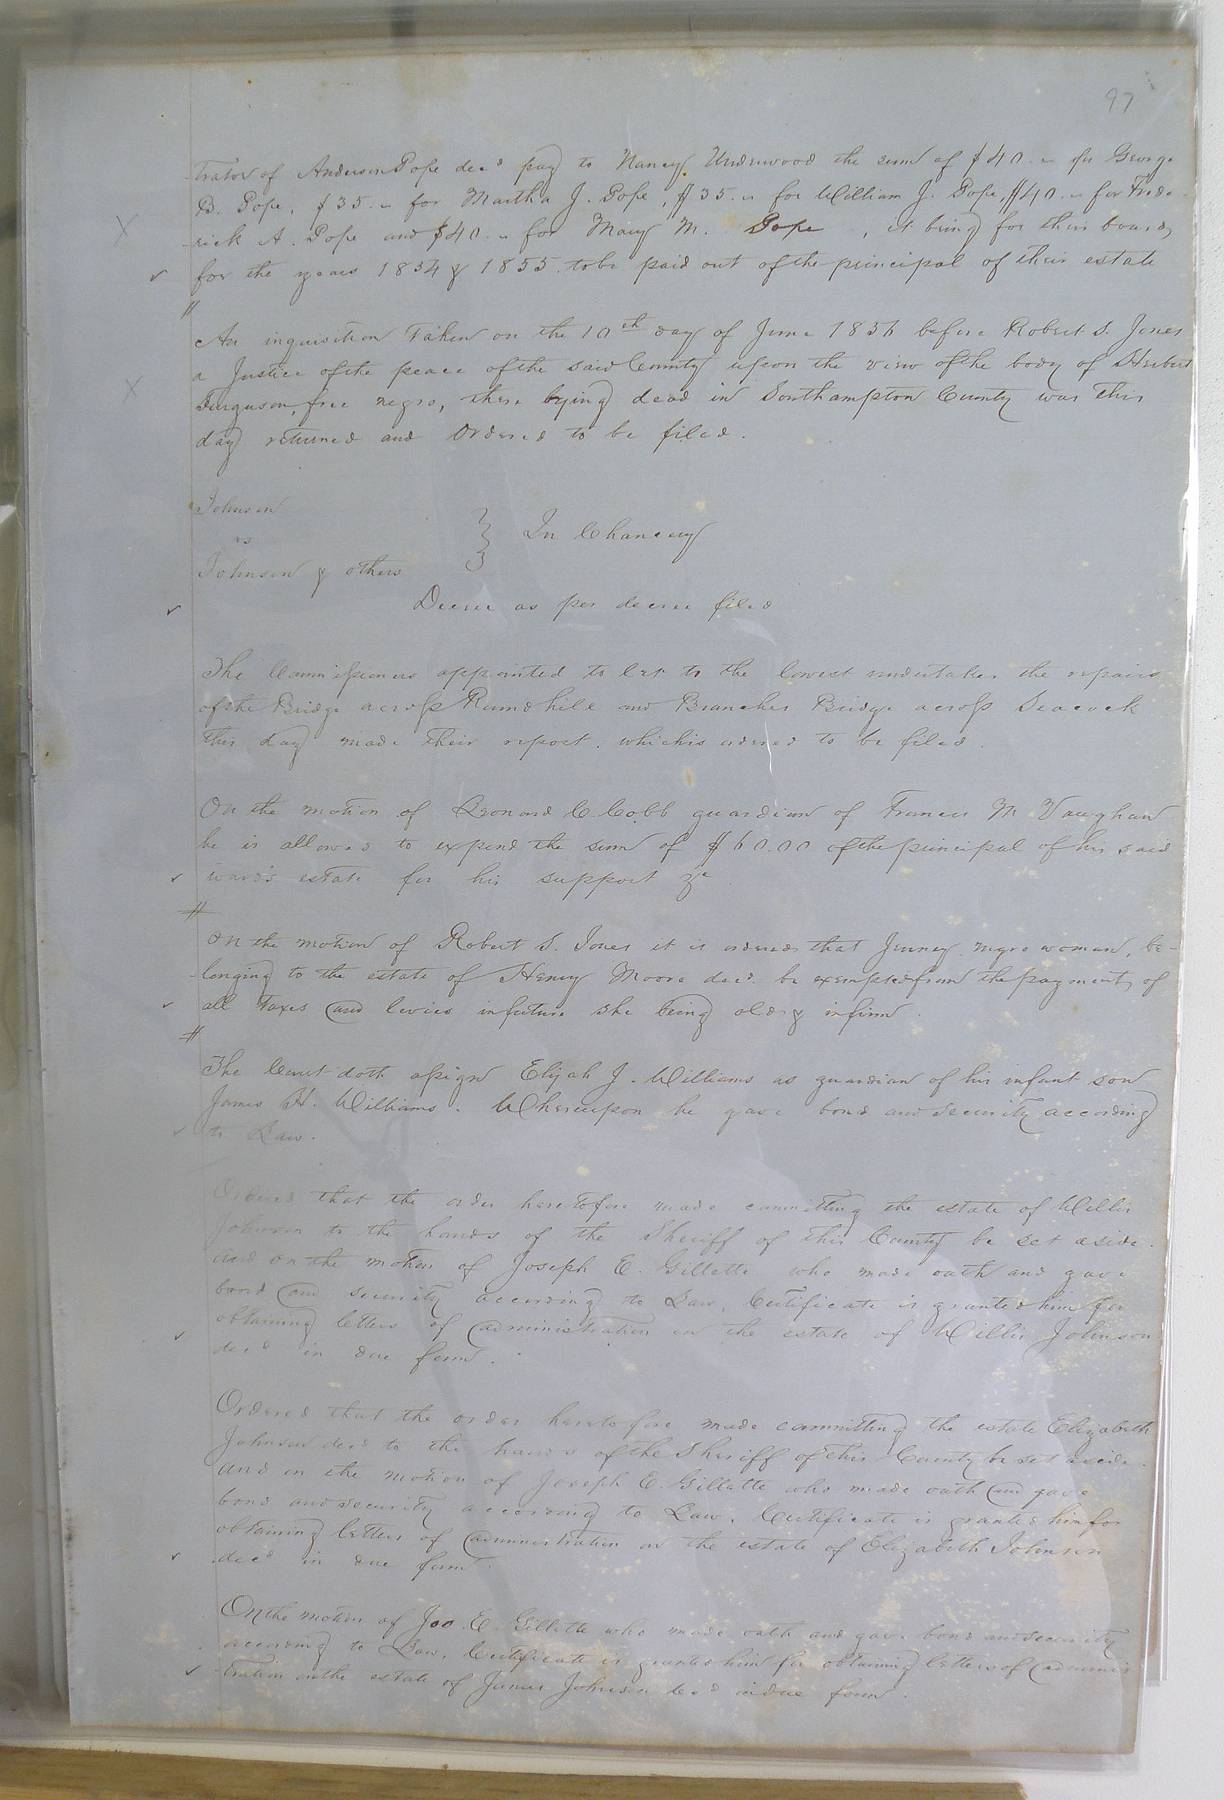 97
trator of Anderson Pope decd pay to Nancy Underwood the sum of $40.. for George
B. Pope, $35.. for Martha J. Pope, $35.. for William J. Pope, $40.. for Frede-
-rick A. Pope and $40.. for Mary M. Pope , it being for their board,
for the years 1854 & 1855. to be paid out of the principal of their estate
//
An inquisition taken on the 10th day of June 1856 before Robert S. Jones
a Justice of the peace of the said County upon the view of the body of Herbert
Ferguson, free negro, there lying dead in Southampton County was this
day returned and Ordered to be filed.
Johnson
vs
Johnson & others
} In Chancery
Decree as per decree filed
The Commissioners appointed to let to the lowest undertaker the repairs
of the Bridge across Round hill and Branches Bridge across Seacock
this day made their report. which is ordered to be filed.
On the motion of Leonard C. Cobb guardian of Francis M. Vaughan
he is allowed to expend the sum of $60.00 of the principal of his said
ward's estate for his support &c
#
On the motion of Robert S. Jones it is ordered that Jenney negro woman, be-
-longing to the estate of Henry Moore decd. be exempted from the payment of
all taxes and levies in future she being old & infirm.
#
The Court doth assign Elijah J. Williams as guardian of his infant son
James H. Williams. Whereupon he gave bond and security according
to Law.
Ordered that the order heretofore made committing the estate of Willis
Johnson to the hands of the Sheriff of this County be set aside.
and on the motion of Joseph E. Gillette who made oath and gave
bond and security according to Law, Certificate is granted him for
obtaining letters of administration on the estate of Willis Johnson
decd in due form.
Ordered that the order heretofore made committing the estate Elizabeth
Johnson decd to the hands of the Sheriff of this County be set aside.
and on the motion of Joseph E. Gillette who made oath and gave
bond and security according to Law. Certificate is granted him for
obtaining letters of administration on the estate of Elizabeth Johnson
decd in due form.
On the motion of Jos. E. Gillette who made oath and gave bond and security
according to Law, Certificate is granted him for obtaining letters of adminis-
tration on the estate of James Johnson decd in due form.